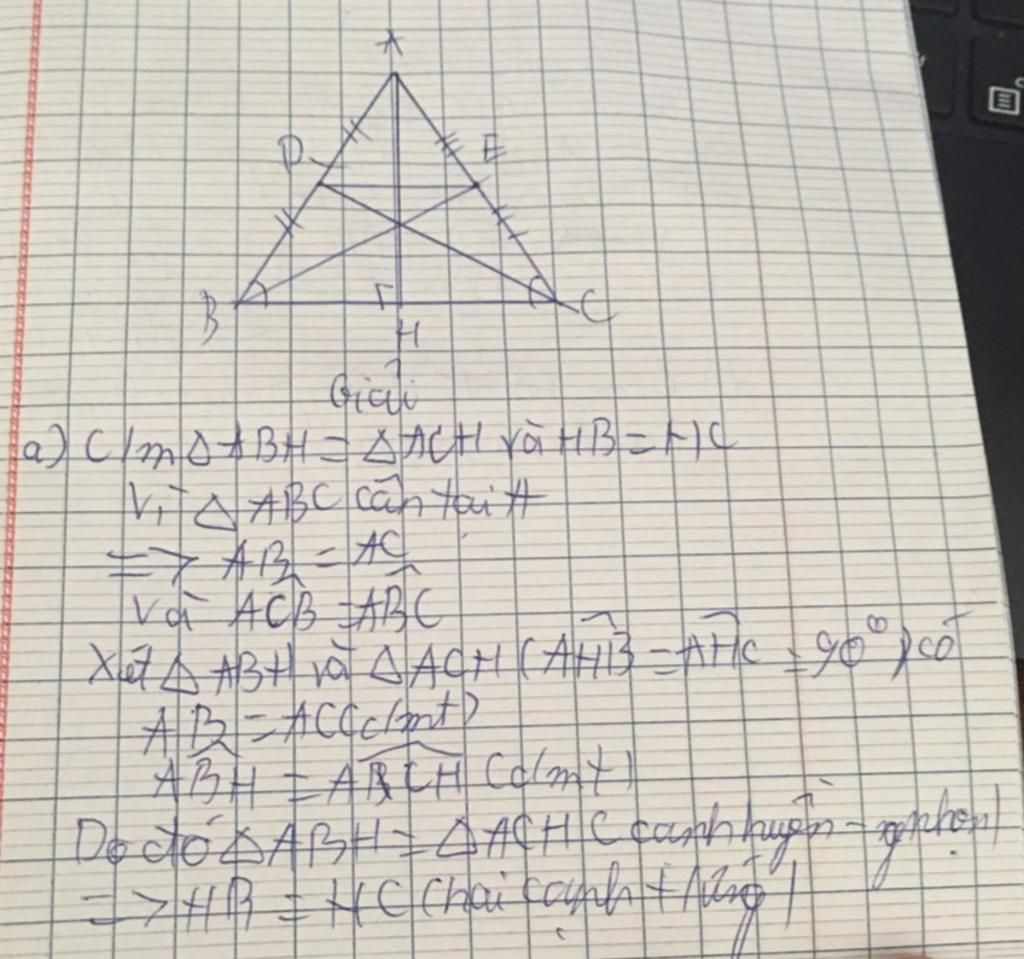 A
D E
B H C
Giải
a) C/m △ ABH = △ ACH và HB = HC
Vì △ ABC cân tại A
=> AB = AC
và AĈB = AB̂C
Xét △ ABH và △ ACH (AHB̂ = AHĈ = 90°) có
AB = AC (c/mt)
AB̂H = AĈH (c/mt)
Do đó △ ABH = △ ACH (cạnh huyền - g nhọn)
=> HB = HC (hai cạnh t/ứng)